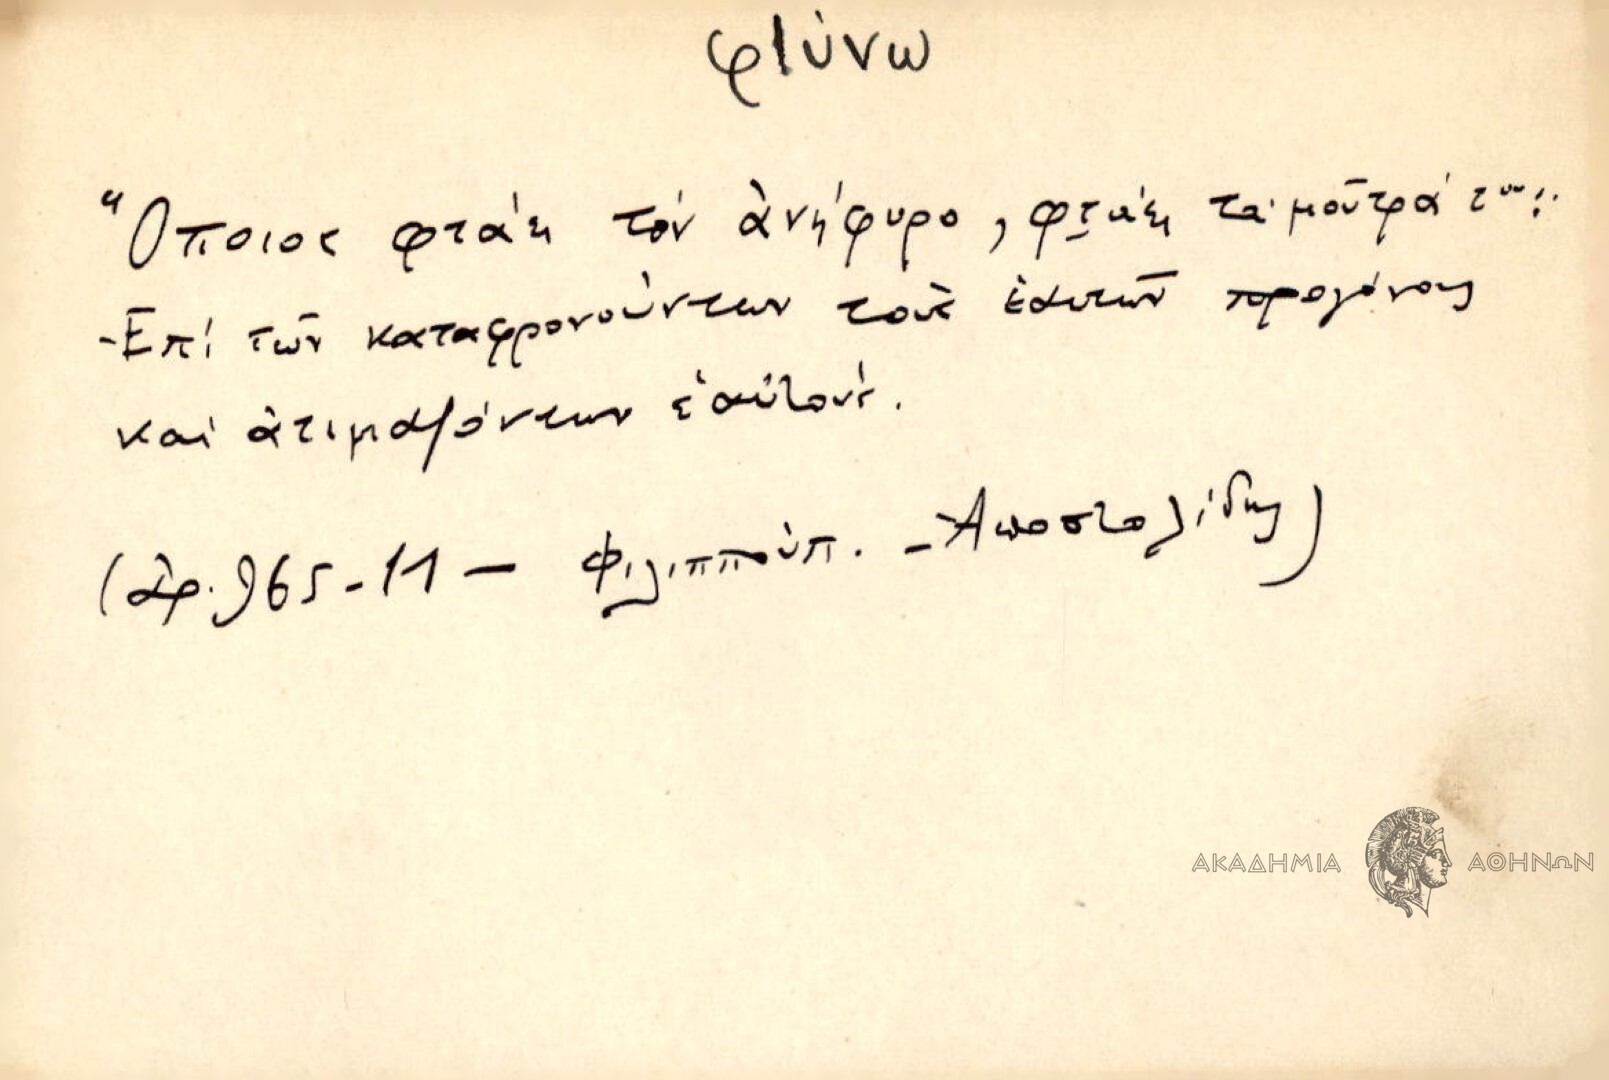 φτύνω
"Οποιος φτάει τόν ἀνήφυρο, φτάει τα μοῦτρά του:·
-Επί τῶν καταφρονούντων τοὺς ἑαυτῶν προγόνους
καί ἀτιμαζόντων ἑαὐτούς.
(ἀρ. 965-11 - Φιλιππούπ. - Αποστολίδης)
ΑΚΑΔΗΜΙΑ ΑΘΗΝΩΝ